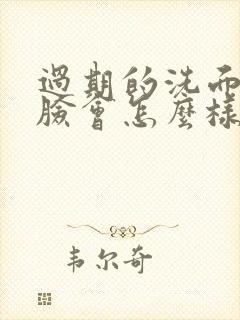 過期的洗面
臉會怎麼樣
韦尔奇